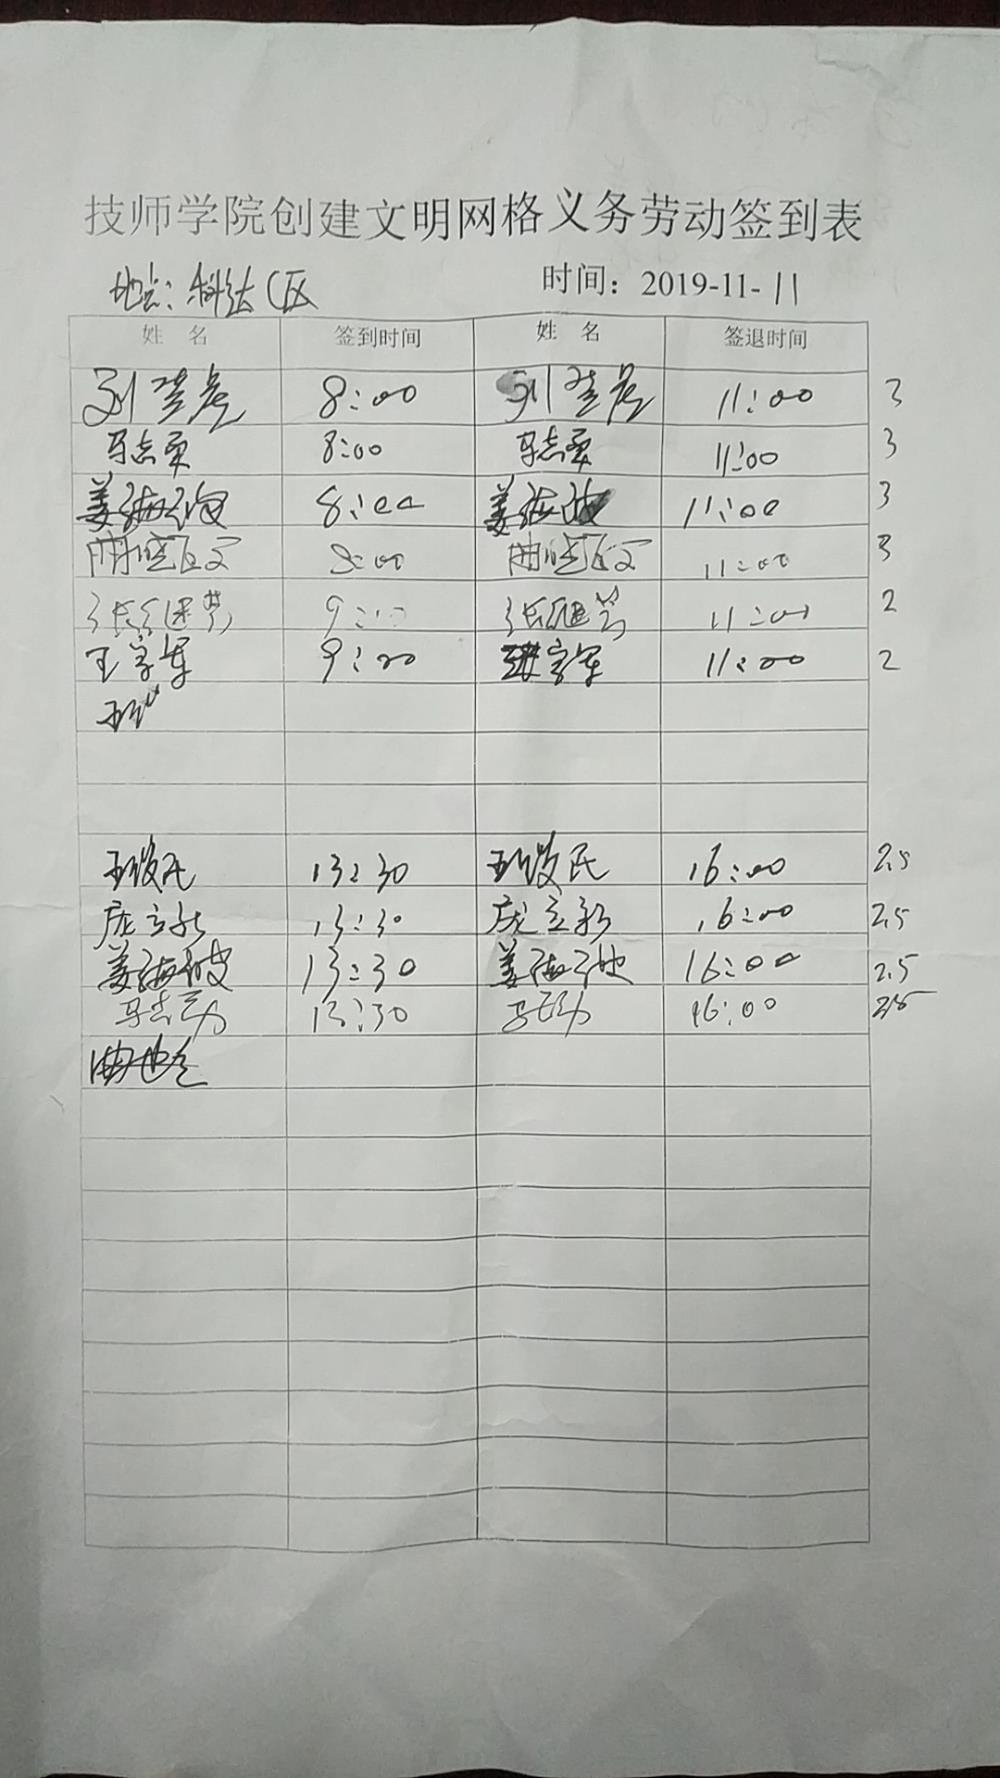 技师学院创建文明网格义务劳动签到表
地点：科达C区 时间：2019-11-11
姓 名 签到时间 姓 名 签退时间
8:00 11:00 3
马志勇 8:00 马志勇 11:00 3
姜海波 8:00 姜海波 11:00 3
8:00 11:00 3
张继芳 9:00 张继芳 11:00 2
王字军 9:00 字军 11:00 2
王
王俊民 13:30 王俊民 16:00 2.5
庞立新 13:30 庞立新 16:00 2.5
姜海波 13:30 姜海波 16:00 2.5
马志勇 13:30 马志勇 16:00 2.5